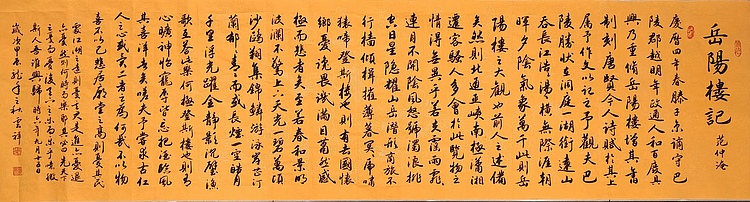 岳陽樓記
范仲淹
慶曆四年春滕子京謫守巴
陵郡越明年政通人和百廢具
興乃重脩岳陽樓增其舊
制刻唐賢今人詩賦於其上
屬予作文以記之予觀夫巴
陵勝狀在洞庭一湖銜遠山
吞長江浩浩湯湯橫無際涯朝
暉夕陰氣象萬千此則岳
陽樓之大觀也前人之述備
矣然則北通巫峽南極瀟湘
遷客騷人多會於此覽物之
情得無異乎若夫霪雨霏霏
連月不開陰風怒號濁浪排
空日星隱耀山岳潛形商旅不
行檣傾楫摧薄暮冥冥虎嘯
猿啼登斯樓也則有去國懷
鄉憂讒畏譏滿目蕭然感
極而悲者矣至若春和景明
波瀾不驚上下天光一碧萬頃
沙鷗翔集錦鱗游泳岸芷汀
蘭郁郁青青而或長煙一空皓月
千里浮光躍金靜影沉璧漁
歌互答此樂何極登斯樓也則有
心曠神怡寵辱皆忘把酒臨風
其喜洋洋者矣嗟夫予嘗求古仁
人之心或異二者之為何哉不以物
喜不以己悲居廟堂之高則憂其民
處江湖之遠則憂其君是進亦憂退
亦憂然則何時而樂耶其必曰先天下
之憂而憂後天下之樂而樂乎噫微
斯人吾誰與歸時六年九月十五日